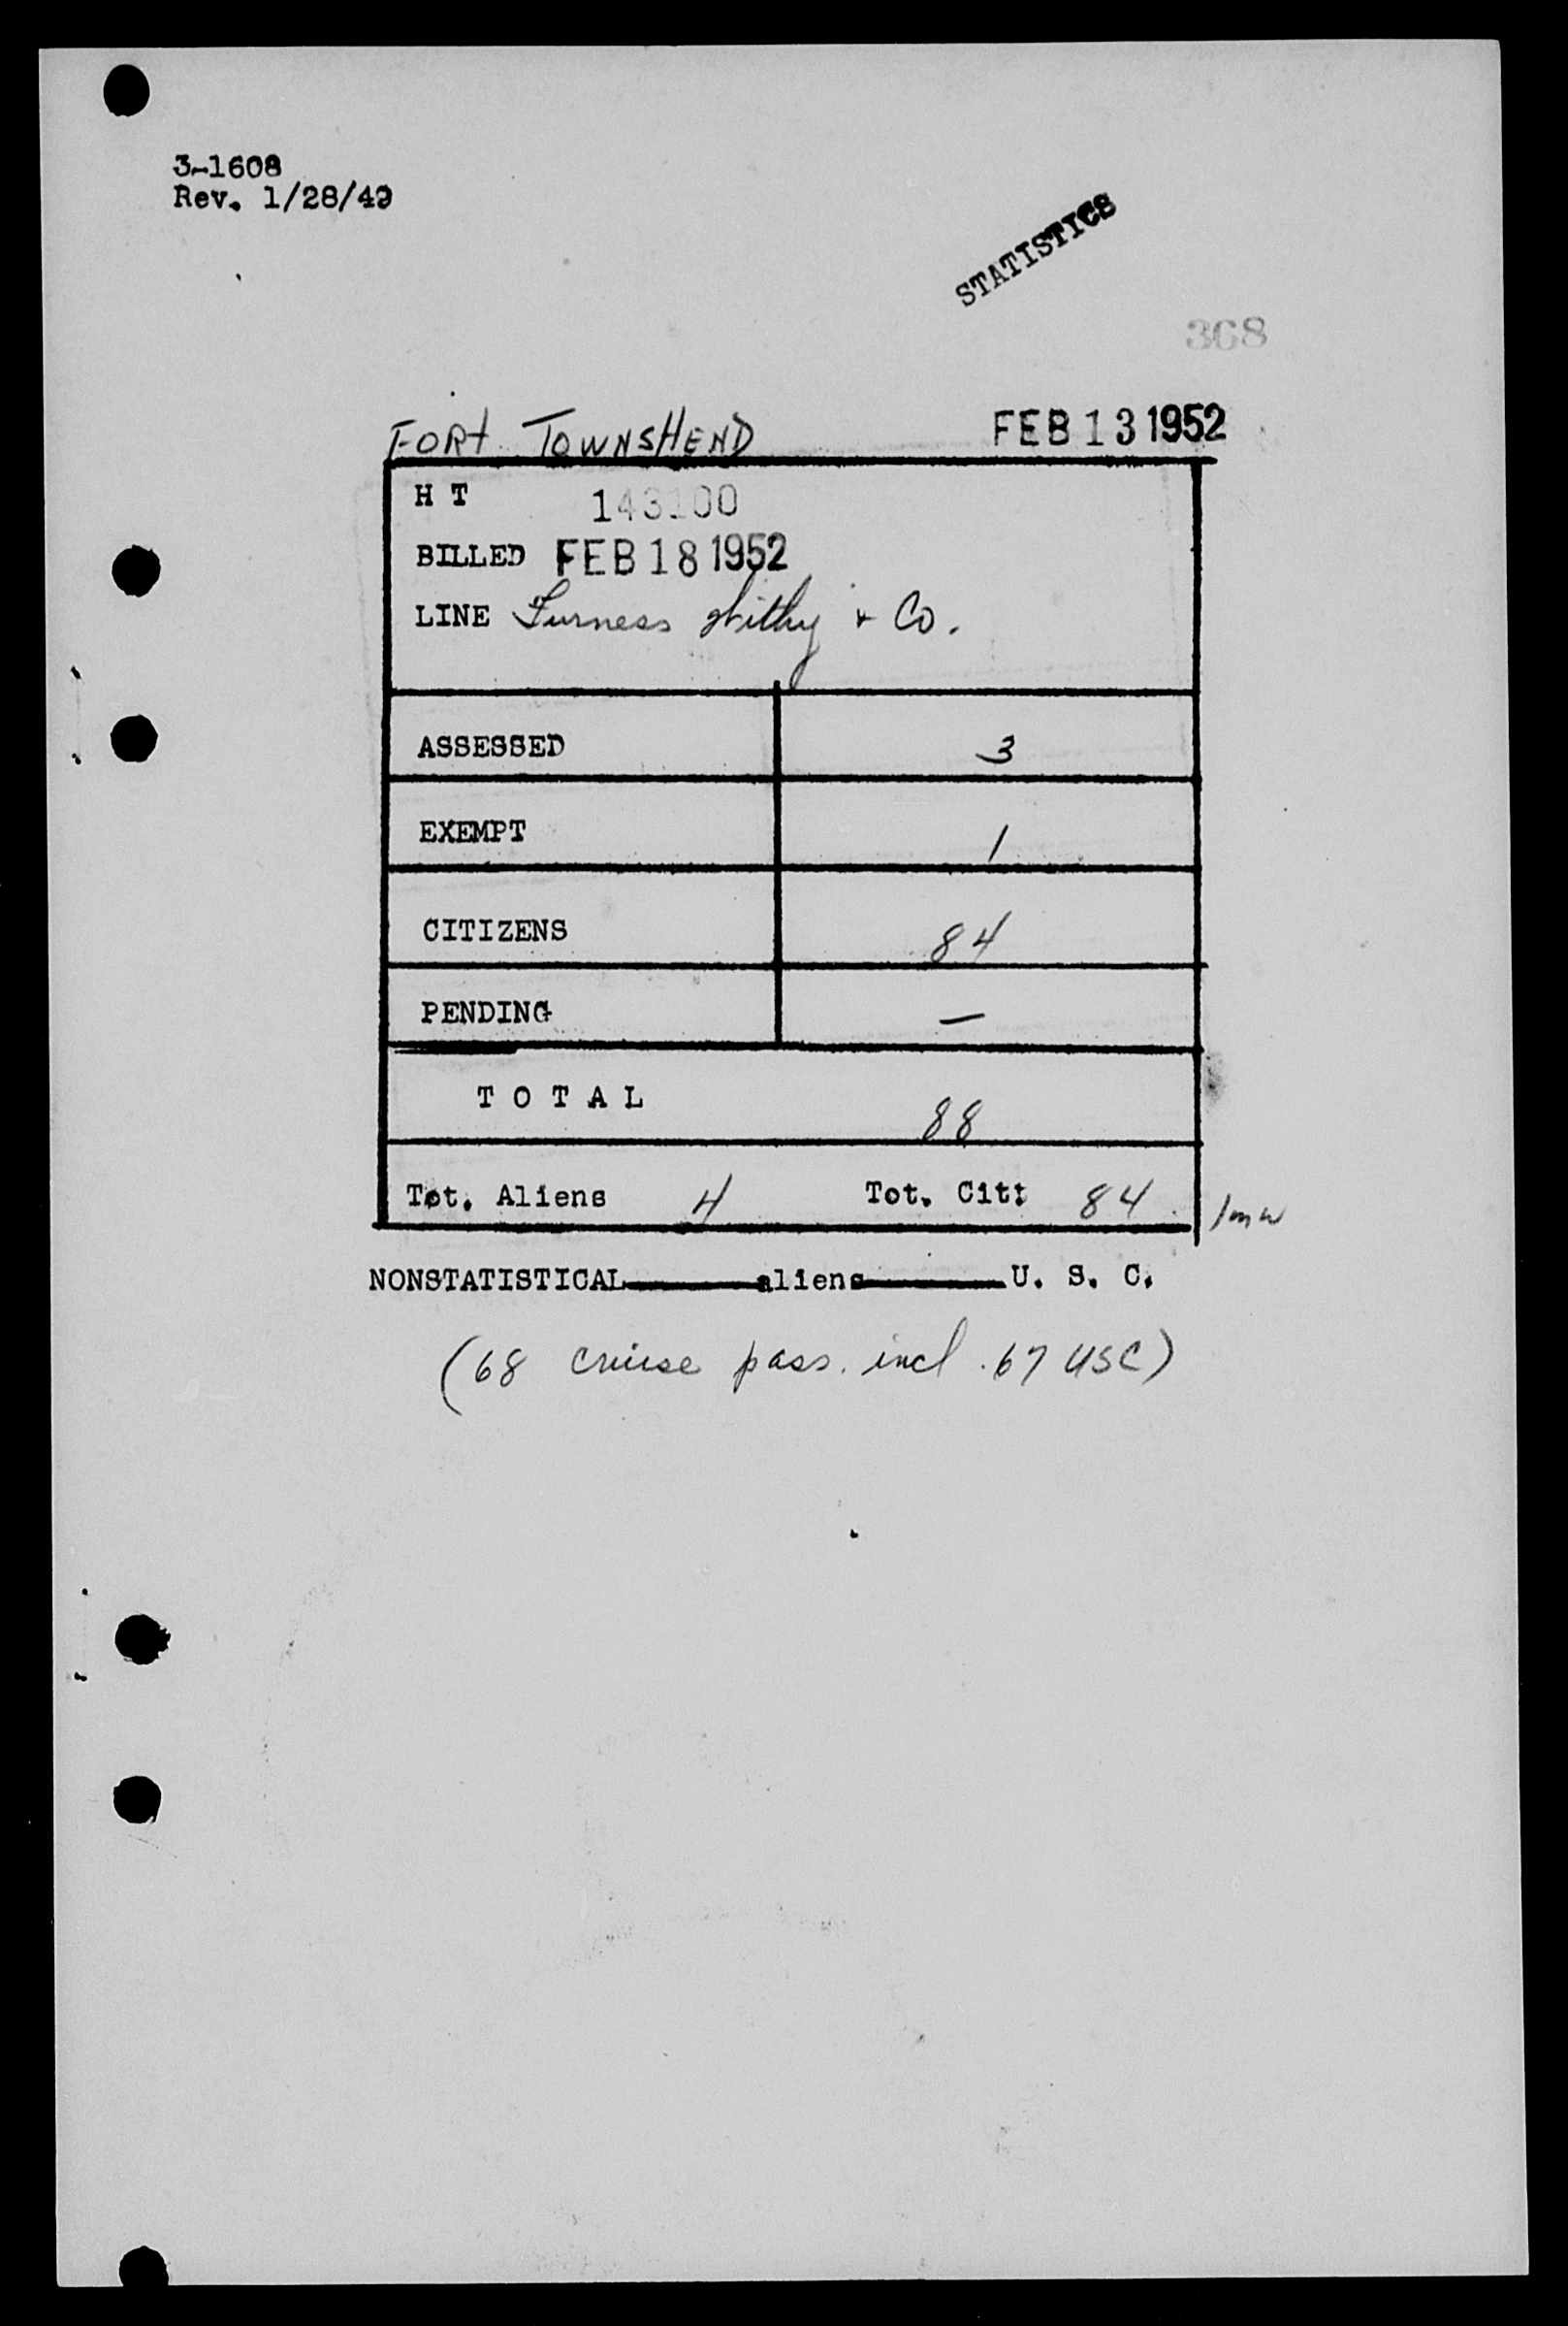 3-1608
Rev. 1/28/49
STATISTICS
368
FORT TOWNSHEND FEB 13 1952
H T 143100
BILLED FEB 18 1952
LINE Furness Withy + Co.
ASSESSED 3
EXEMPT 1
CITIZENS 84
PENDING —
TOTAL 88
Tot. Aliens 4 Tot. Cit: 84
NONSTATISTICAL aliens U. S. C.
(68 cruise pass. incl. 67 USC)